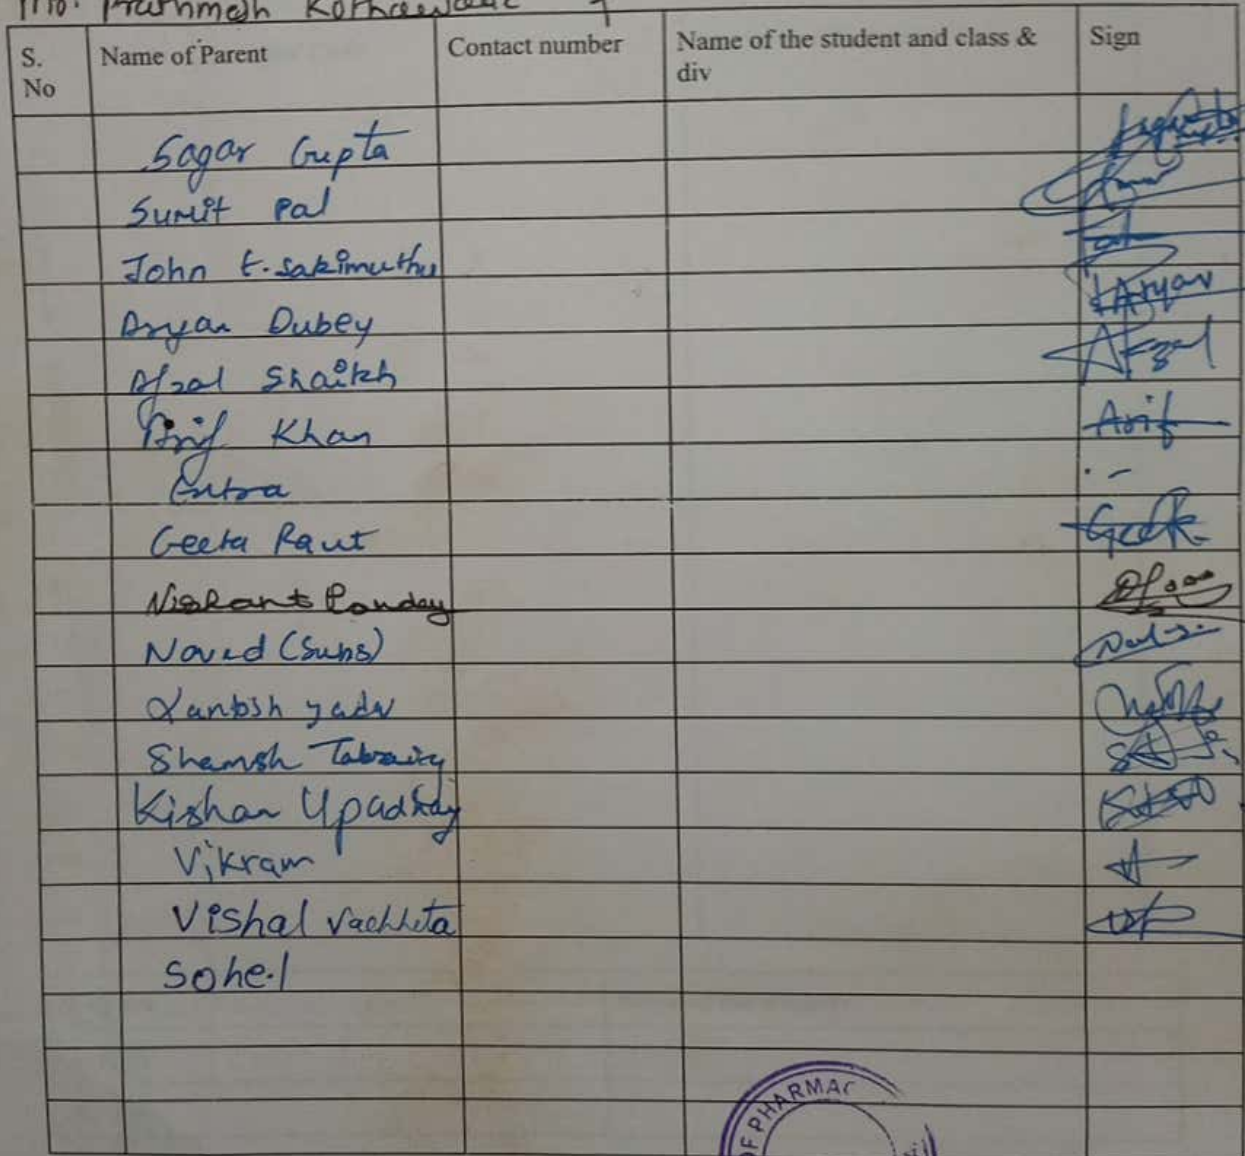 Prathmesh
S. No Name of Parent Contact number Name of the student and class & div Sign
Sagar Gupta
Sumit Pal
John E. Sakimuthu
Aryan Dubey Aryan
Afzal Shaikh Afzal
Arif Khan Arif
Geeta Raut
Nishant Panday
Naved (Subs)
Santosh yadv
Shamsh Tabraiz
Kishan Upadhay
Vikram
Vishal Vachheta
Sohel
OF PHARMAC